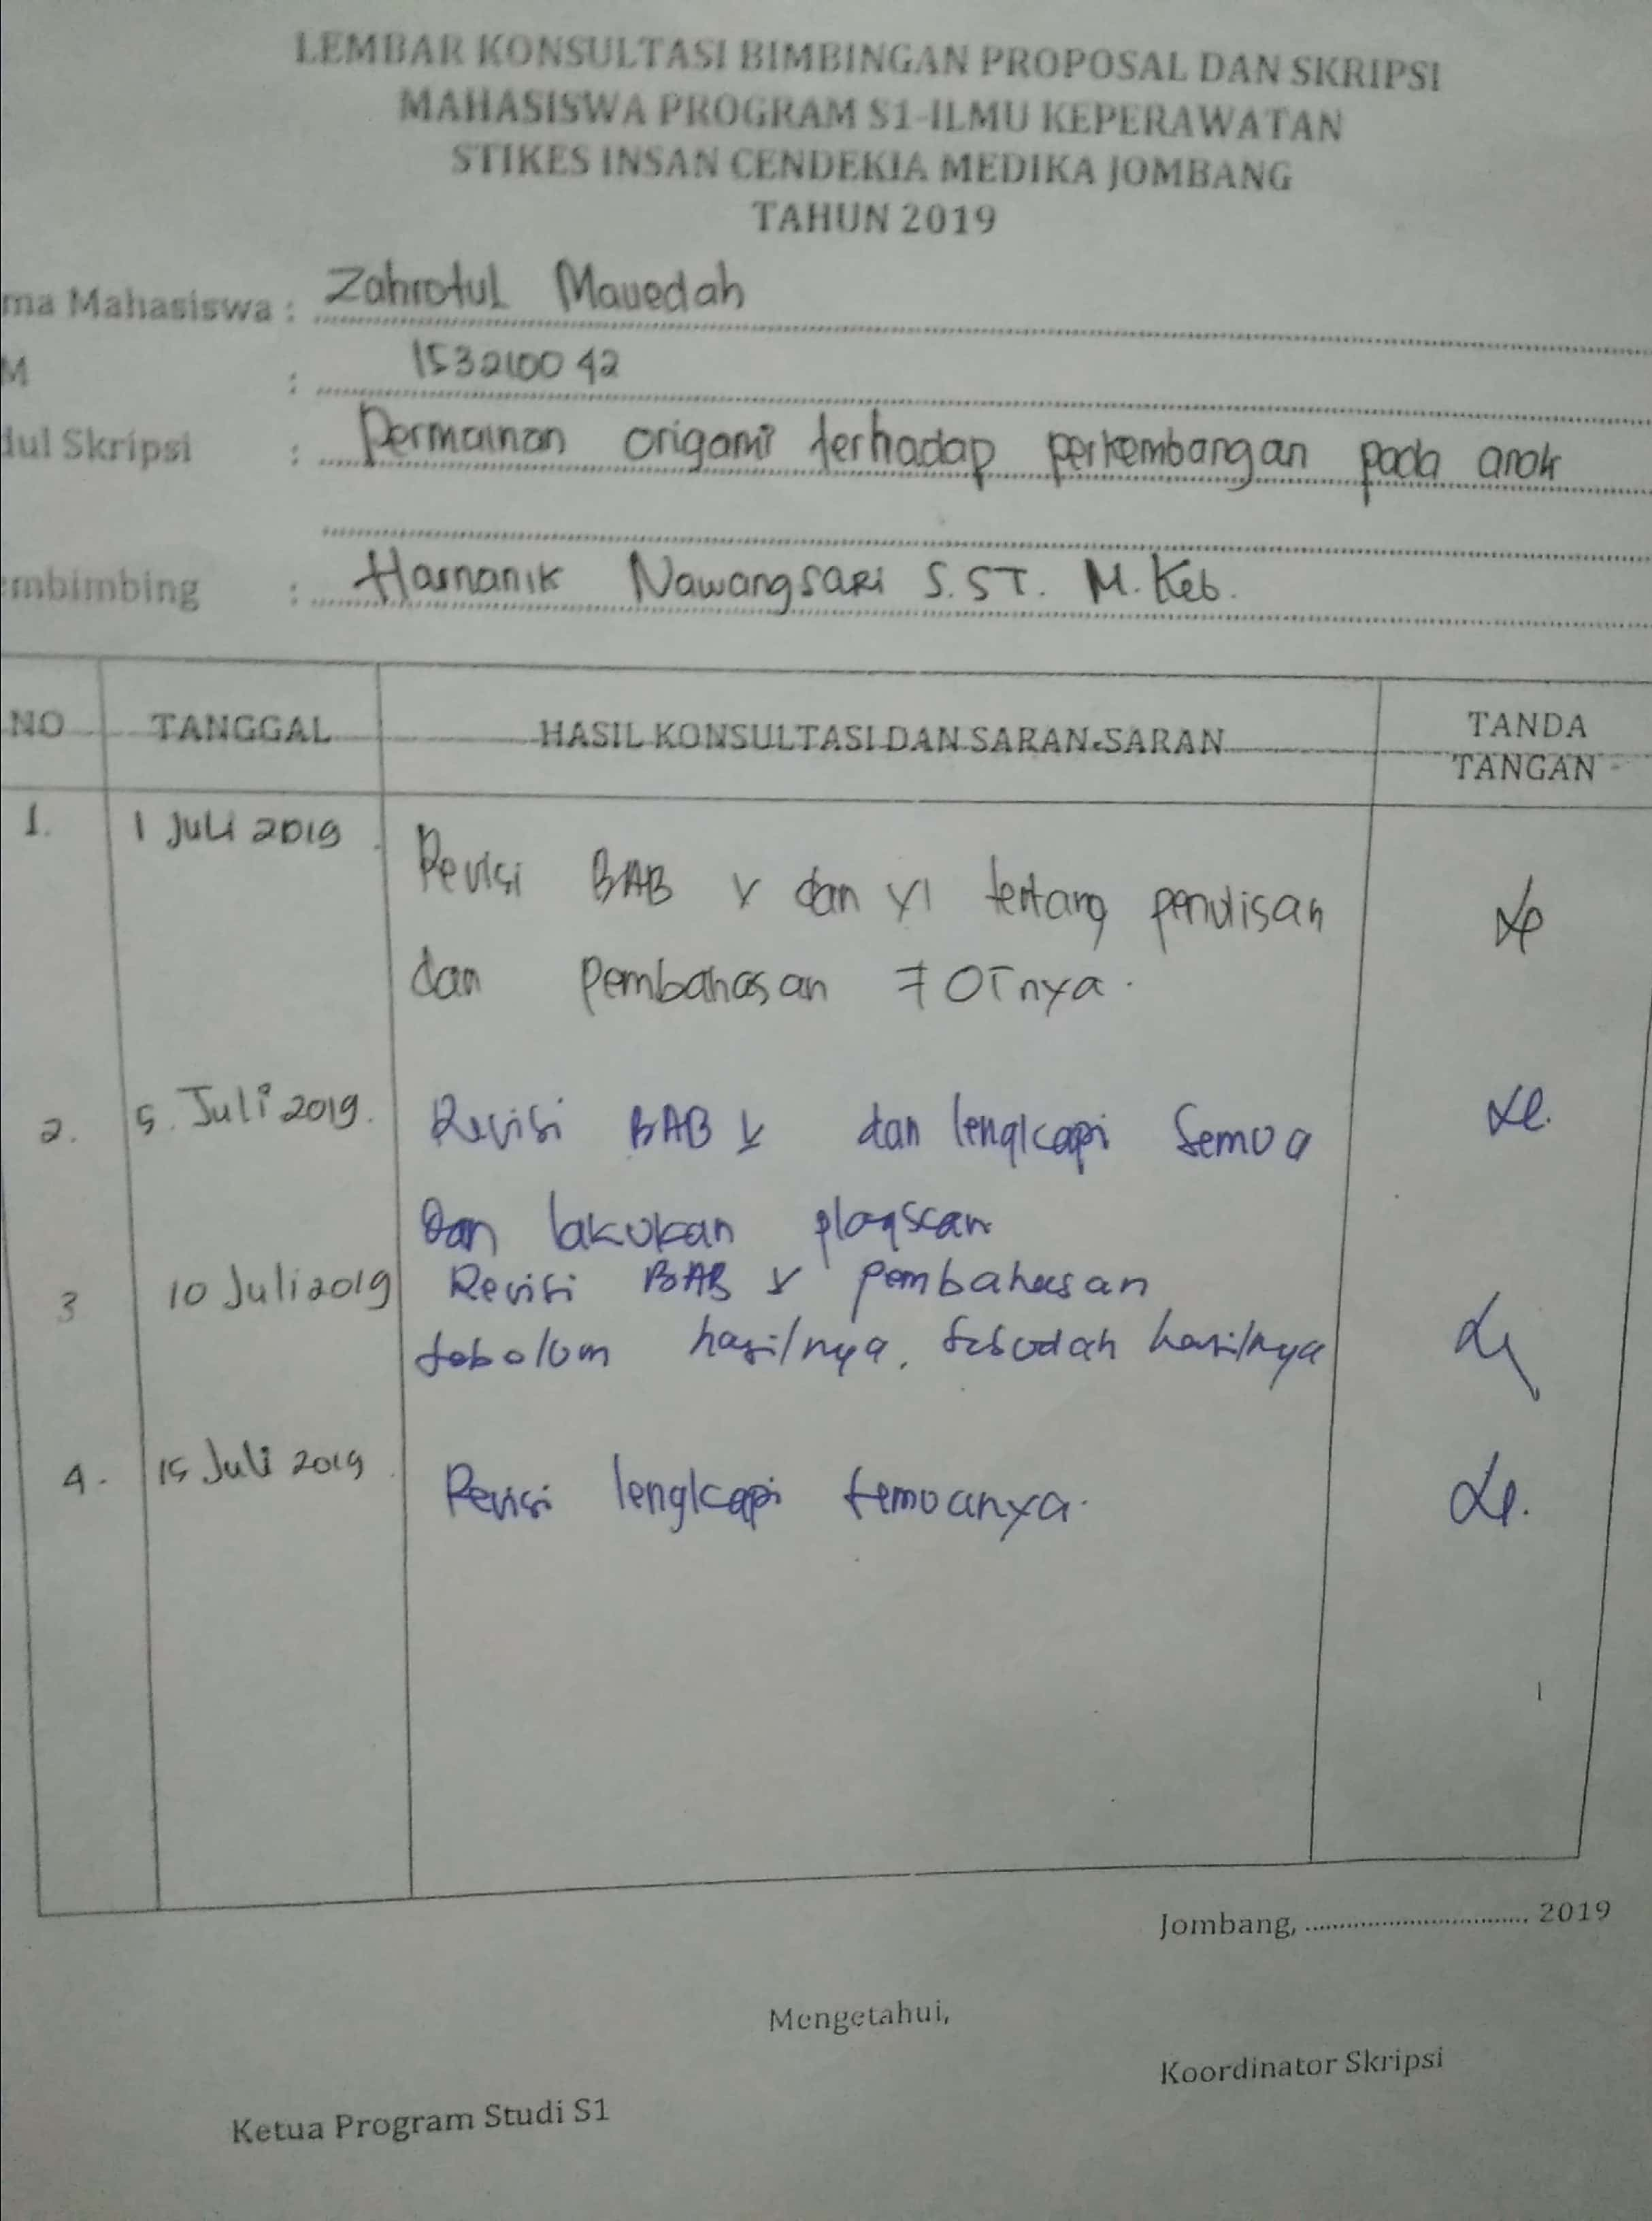 LEMBAR KONSULTASI BIMBINGAN PROPOSAL DAN SKRIPSI
MAHASISWA PROGRAM S1-ILMU KEPERAWATAN
STIKES INSAN CENDEKIA MEDIKA JOMBANG
TAHUN 2019
ma Mahasiswa : Zahrotul Mauedah
M : 153210042
dul Skripsi : Permainan origami terhadap perkembangan pada anak
embimbing : Harnanik Nawangsari S.ST. M.Keb.
NO TANGGAL HASIL KONSULTASI DAN SARAN-SARAN TANDA
TANGAN
1. 1 Juli 2019 Revisi BAB V dan VI tentang penulisan
dan Pembahasan FOTnya.
2. 5. Juli 2019. Revisi BAB V dan lengkapi semua
dan lakukan plagscan
3 10 Juli 2019 Revisi BAB V pembahasan
sebelum hasilnya, sesudah hasilnya
4. 15 Juli 2019 Revisi lengkapi semuanya.
Jombang, .......................... 2019
Mengetahui,
Koordinator Skripsi
Ketua Program Studi S1